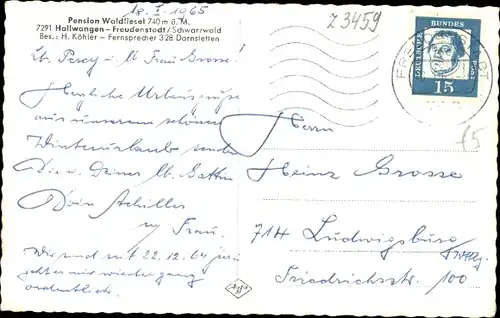 18. I. 1965
Z 3459
Pension Waldliesel 740 m ü. M.
7291 Hallwangen – Freudenstadt / Schwarzwald
Bes.: H. Köhler – Fernsprecher 328 Dornstetten
DEUTSCHE BUNDESPOST
15
Lb. Percy u. Frau Grosse
Herzliche Urlaubsgrüße
aus unserem schönen
Winterurlaub sendet
Dir u. Deiner lb. Gattin
Dein Achilles
u. Frau.
Wir sind seit 22.12.64
geht es mir wieder ganz
ordentlich.
Herrn
Heinz Grosse
714 Ludwigsburg/Wttbg.
Friedrichstr. 100
Agfa